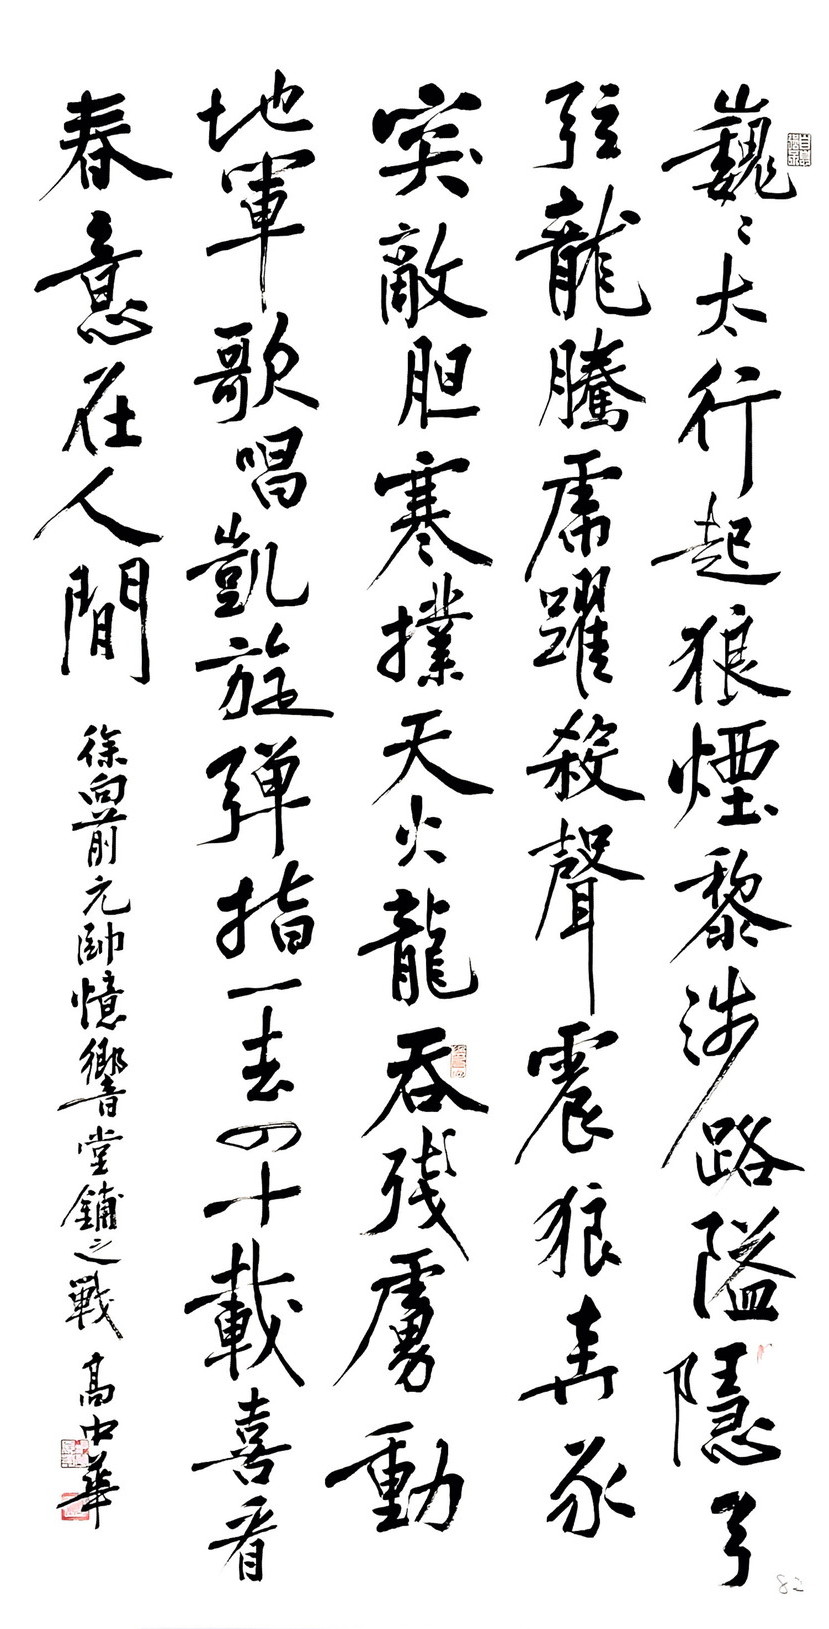 巍〻太行起狼煙黎涉路隘隱弓
弦龍騰虎躍殺聲震狼奔豕
突敵胆寒撲天火龍吞残虜動
地軍歌唱凱旋弹指一去四十載喜看
春意在人間
徐向前元帥憶響堂鋪之戰 高中華
82